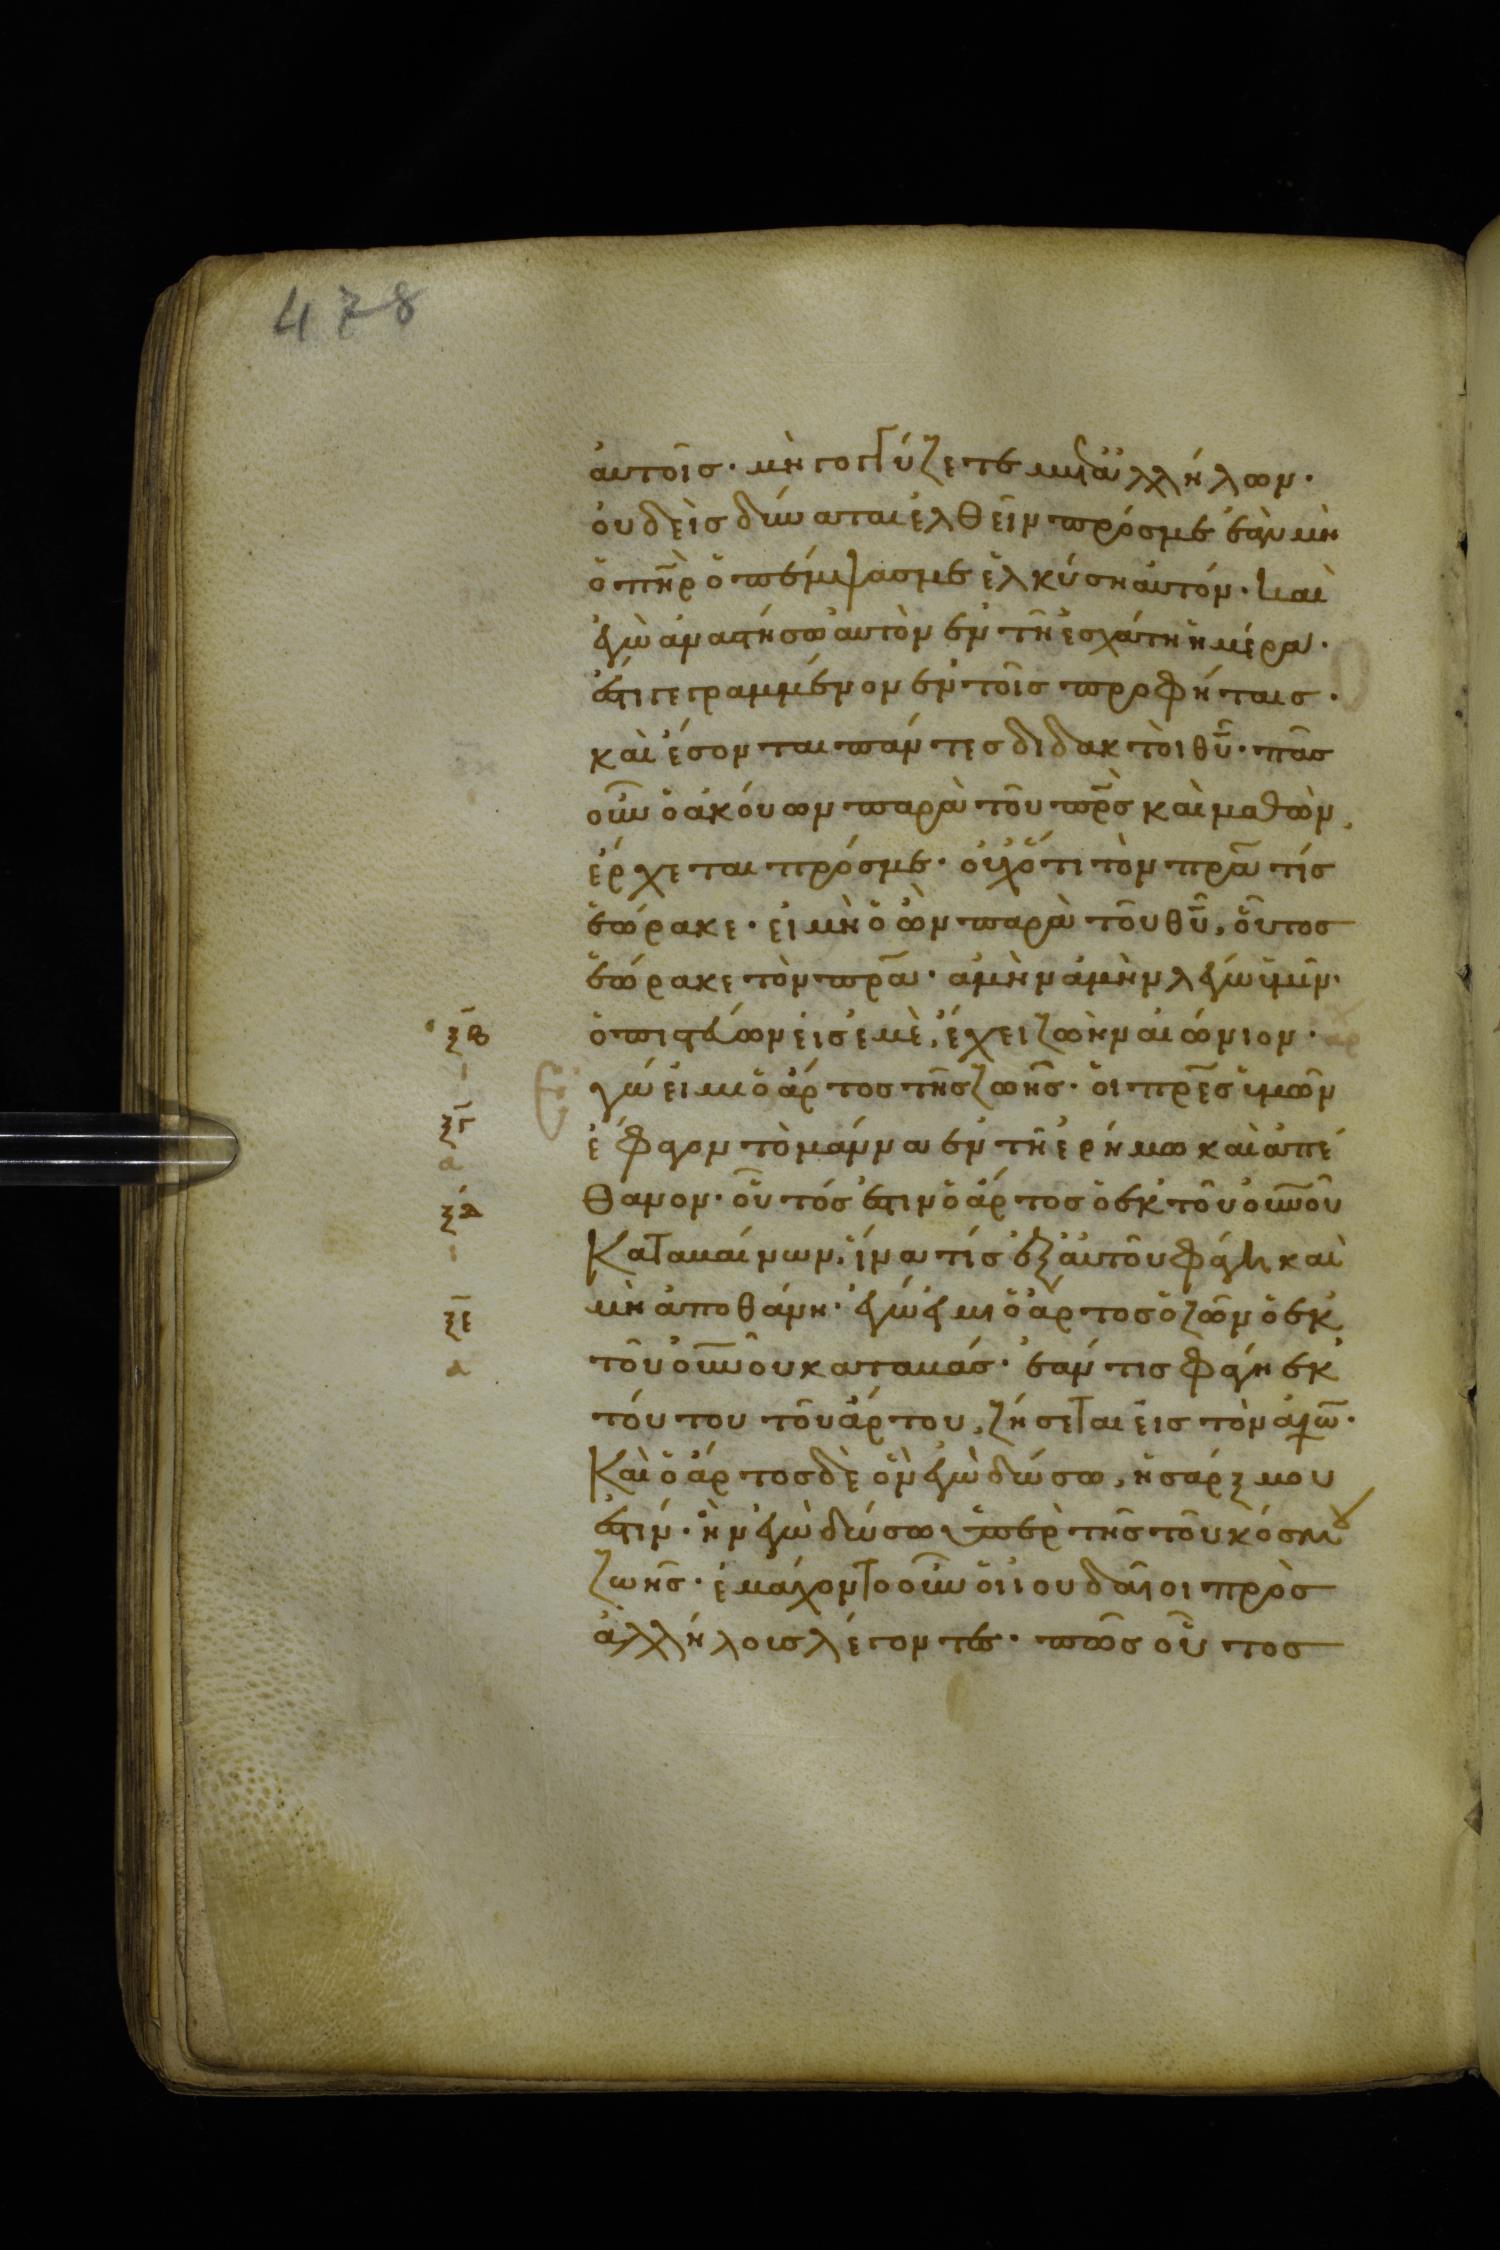 478
ἀυτοῖσ· μὴ γογγύζετε μετ ἀλλήλων·
ὀυδεὶσ δύναται ἐλθεῖν πρόσ με ἐὰν μὴ
ὁ πῆρ ὁ πέμψασ με ἑλκύση ἀυτόν· καὶ
ἐγὼ ἀναστήσω ἀυτὸν ἐν τῆ ἐσχάτη ἡμέρα·
ἔστι γεγραμμένον ἐν τοῖσ προφήταισ·
καὶ ἔσονται πάντεσ διδακτοὶ θῦ· πᾶσ
οῦν ὁ ἀκόυων παρὰ τοῦ πρ̅σ καὶ μαθὼν,
ἔρχεται πρόσ με· ὀυχ ὅτι τὸν πρ̅α τίσ
ἑώρακε· εἰ μὴ ὁ ὢν παρὰ τοῦ θῦ, οὗτοσ
ἑώρακε τὸν πρ̅α· ἀμὴν ἀμὴν λέγω ὑμῖν·
ξβ ὁ πιστεύων εἰσ ἐμὲ, ἔχει ζωὴν αἰώνιον·
Ε γώ εἰμι ὁ ἄρτοσ τῆσ ζωῆσ· ὁι πρ̅εσ ὑμῶν
ξγ ἔφαγον τὸ μάννα ἐν τῆ ἐρήμω καὶ ἀπέ
α
ξδ θανον· οὗτόσ ἐστιν ὁ ἄρτοσ ὁ ἐκ τοῦ ὀυνοῦ
καταβαίνων, ἵνα τίσ ἐξ ἀυτοῦ φάγη καὶ
ξε μὴ ἀποθάνη· ἐγώ εἰμι ὁ ἄρτοσ ὁ ζῶν ὁ ἐκ
α τοῦ ὀυνοῦ καταβάσ· ἐάν τισ φάγη ἐκ
τόυτου τοῦ ἄρτου, ζήσεται εἰσ τὸν αἰῶ·
Καὶ ὁ ἄρτοσ δὲ ὃν ἐγὼ δώσω, ἡ σάρξ μου
ἐστίν· ἣν ἐγὼ δώσω ὑπὲρ τῆσ τοῦ κόσμου
ζωῆσ· ἐμάχοντο οῦν ὁι ἰουδαῖοι πρὸσ
ἀλλήλουσ λέγοντεσ· πῶσ οὗτοσ